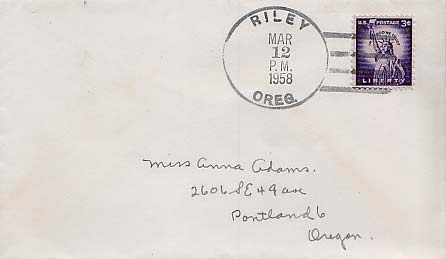 RILEY
MAR
12
P.M.
1958
OREG.
U.S. POSTAGE 3¢
IN GOD WE TRUST
LIBERTY
Miss Anna Adams.
2606 SE 49 ave
Portland 6
Oregon.